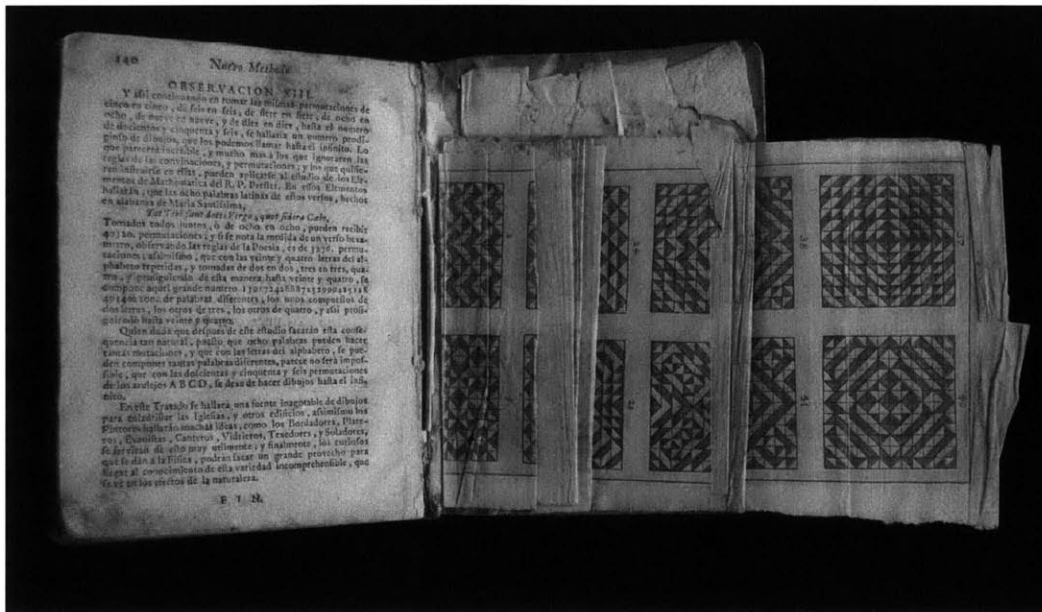 140 Nuevo Methodo
OBSERVACION XIII.
Y assi continuando en tomar las mismas permutaciones de
cinco en cinco, de seis en seis, de siete en siete, de ocho en
ocho, de nueve en nueve, y de diez en diez, hasta el numero
de docientos y cinquenta y seis, se hallaria un numero prodi-
gioso de dibujos, que los podemos llamar hasta el infinito. Lo
que parecerà increìble, y mucho mas à los que ignoraren las
reglas de las convinaciones, y permutaciones; y los que quisie-
ren instruirse en ellas, pueden aplicarse al estudio de los Ele-
mentos de Mathematica del R. P. Prestet. En estos Elementos
hallaràn, que las ocho palabras latinas de estos versos, hechos
en alabanza de Maria Santissima,
Tot Tibi sunt dotes Virgo, quot sidera Cælo,
Tomados todos juntos, ò de ocho en ocho, pueden recibir
permutaciones; y si se nota la medida de un verso hexa-
metro, observando las reglas de la Poesia, es de permu-
taciones; assimismo, que con las veinte y quatro letras del al-
phabeto repetidas, y tomadas de dos en dos, tres en tres, qua-
tro, y prosiguiendo de esta manera hasta veinte y quatro, se
compone aquel grande numero
de palabras diferentes, los unos compuestos de
dos letras, los otros de tres, los otros de quatro, y assi prosi-
guiendo hasta veinte y quatro.
Quien duda que despues de este estudio sacaràn esta conse-
quencia tan natural, puesto que ocho palabras pueden hacer
tantas mutaciones, y que con las letras del alphabeto, se pue-
den componer tantas palabras diferentes, parece no serà impos-
sible, que con las docientas y cinquenta y seis permutaciones
de los azulejos A B C D, se dexa de hacer dibujos hasta el infi-
nito.
En este Tratado se hallarà una fuente inagotable de dibujos
para enladrillar las Iglesias, y otros edificios, assimismo los
Pintores hallaràn muchas ideas, como los Bordadores, Plate-
ros, Evanistas, Canteros, Vidrieros, Texedores, y Soladores,
se serviràn de esto muy utilmente; y finalmente, los curiosos
que se dàn à la Fisica, podràn sacar un grande provecho para
llegar al conocimiento de esta variedad incomprehensible, que
se vè en los efectos de la naturaleza.
F I N.
34
38
37
31